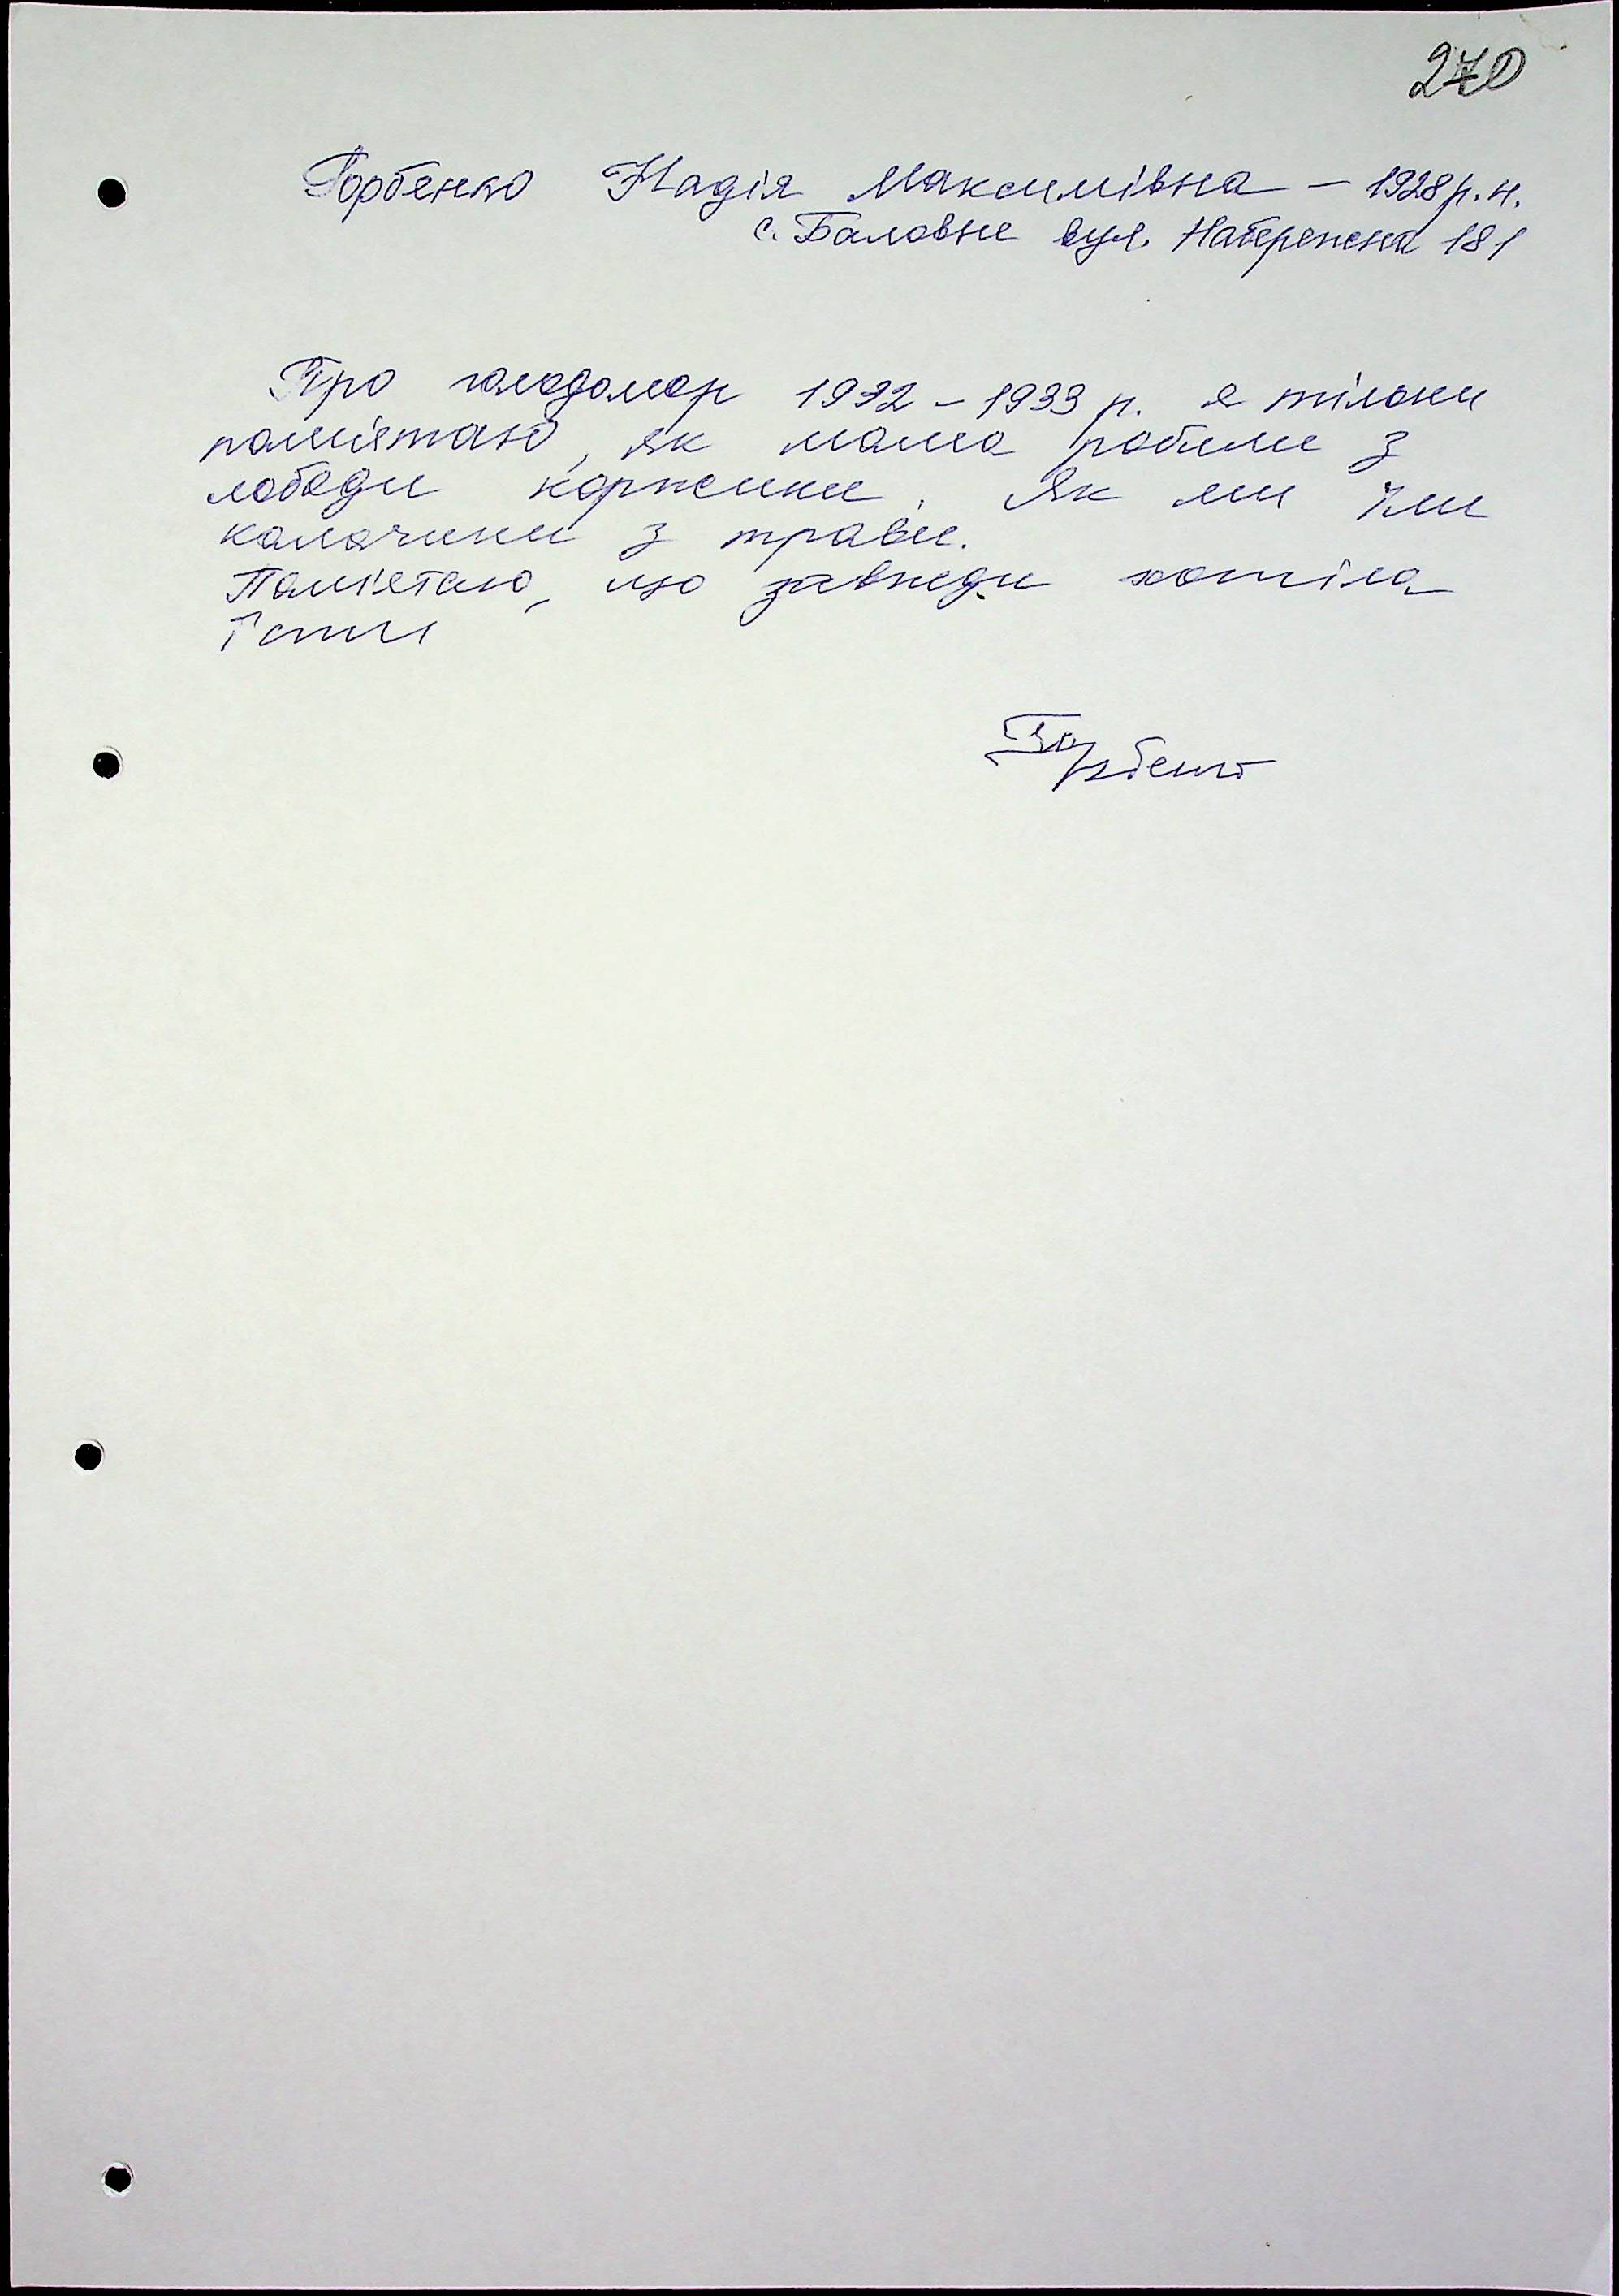 270
Горбенко Надія Максимівна – 1928 р. н.
с. Баловне вул. Набережна 181
Про голодомор 1932 – 1933 р. я тільки
пам'ятаю, як мама робили з
лободи коржики. Як ми їли
калачики з трави.
Пам'ятаю, що завжди хотіла
їсти
Горбенко